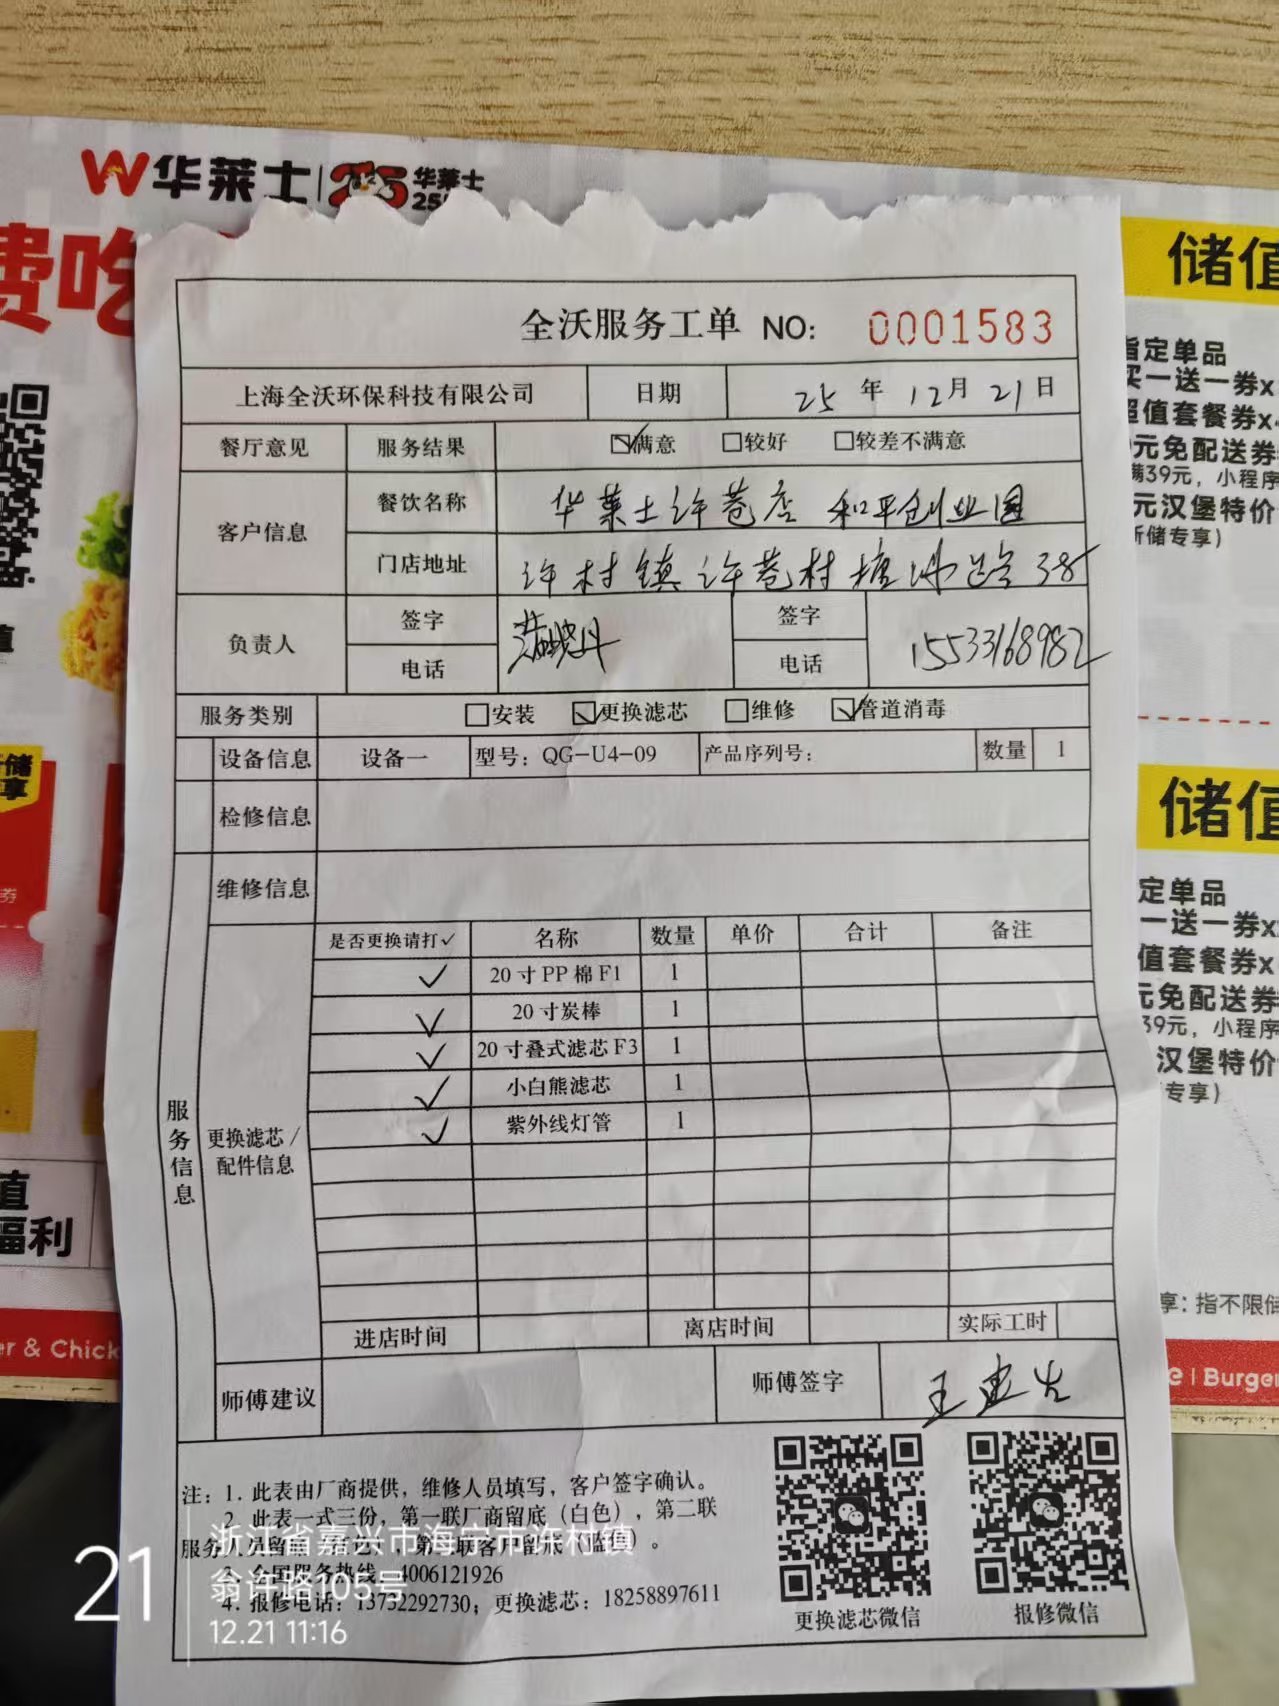 华莱士 华莱士
费吃
全沃服务工单 NO: 0001583
上海全沃环保科技有限公司 日期 25年12月21日
餐厅意见 服务结果 满意 较好 较差不满意
客户信息 餐饮名称 华莱士许巷店 和平创业园
门店地址 许村镇许巷村 38
负责人 签字 签字
电话 电话 15533168982
服务类别 安装 更换滤芯 维修 管道消毒
设备信息 设备一 型号: QG-U4-09 产品序列号: 数量 1
检修信息
维修信息
服务信息
更换滤芯/
配件信息
是否更换请打✓ 名称 数量 单价 合计 备注
✓ 20寸PP棉F1 1
✓ 20寸炭棒 1
✓ 20寸叠式滤芯F3 1
✓ 小白熊滤芯 1
✓ 紫外线灯管 1
进店时间 离店时间 实际工时
师傅建议 师傅签字
注: 1. 此表由厂商提供，维修人员填写，客户签字确认。
2. 此表一式三份，第一联厂商留底（白色），第二联
服务人员留底 联客户留底（蓝色）。
全国服务热线: 4006121926
4. 报修电话: 13732292730; 更换滤芯: 18258897611
更换滤芯微信 报修微信
21
浙江省嘉兴市海宁市许村镇
翁许路105号
12.21 11:16
储值
指定单品
买一送一券x
超值套餐券x
元免配送券
满39元，小程序
元汉堡特价
新储专享)
储值
定单品
一送一券x
值套餐券x
元免配送券
39元，小程序
汉堡特价
专享)
享: 指不限储
Burger
储
享
券
值
福利
er & Chick